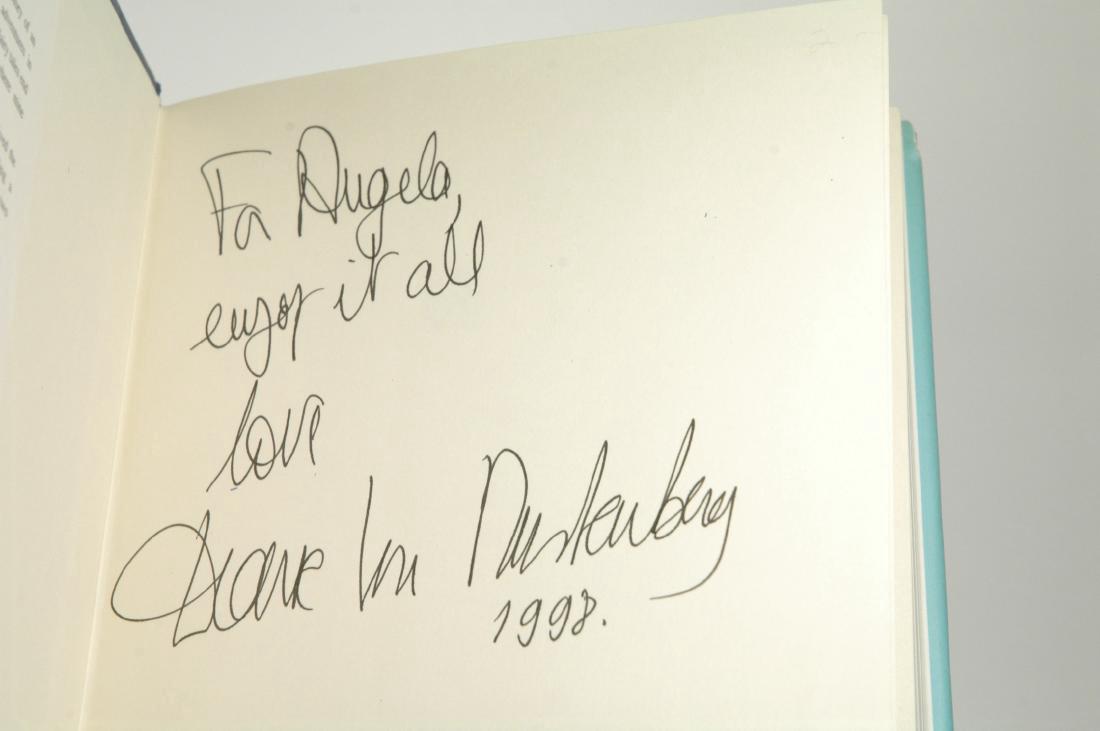 For Angela,
enjoy it all
love
Diane Von Furstenberg
1998.